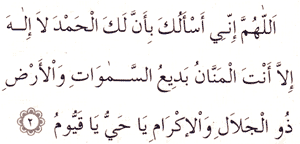 اَللّٰهُمَّ إِنِّـي أَسْأَلُكَ بِأَنَّ لَكَ الْحَمْدَ لاَ إِلٰـهَ
إِلاَّ أَنْتَ الْمَنَّانُ بَدِيعُ السَّـمٰوَاتِ وَالْأَرْضِ
ذُو الْجَلَالِ وَالْإِكْرَامِ يَا حَيُّ يَا قَيُّومُ ٢